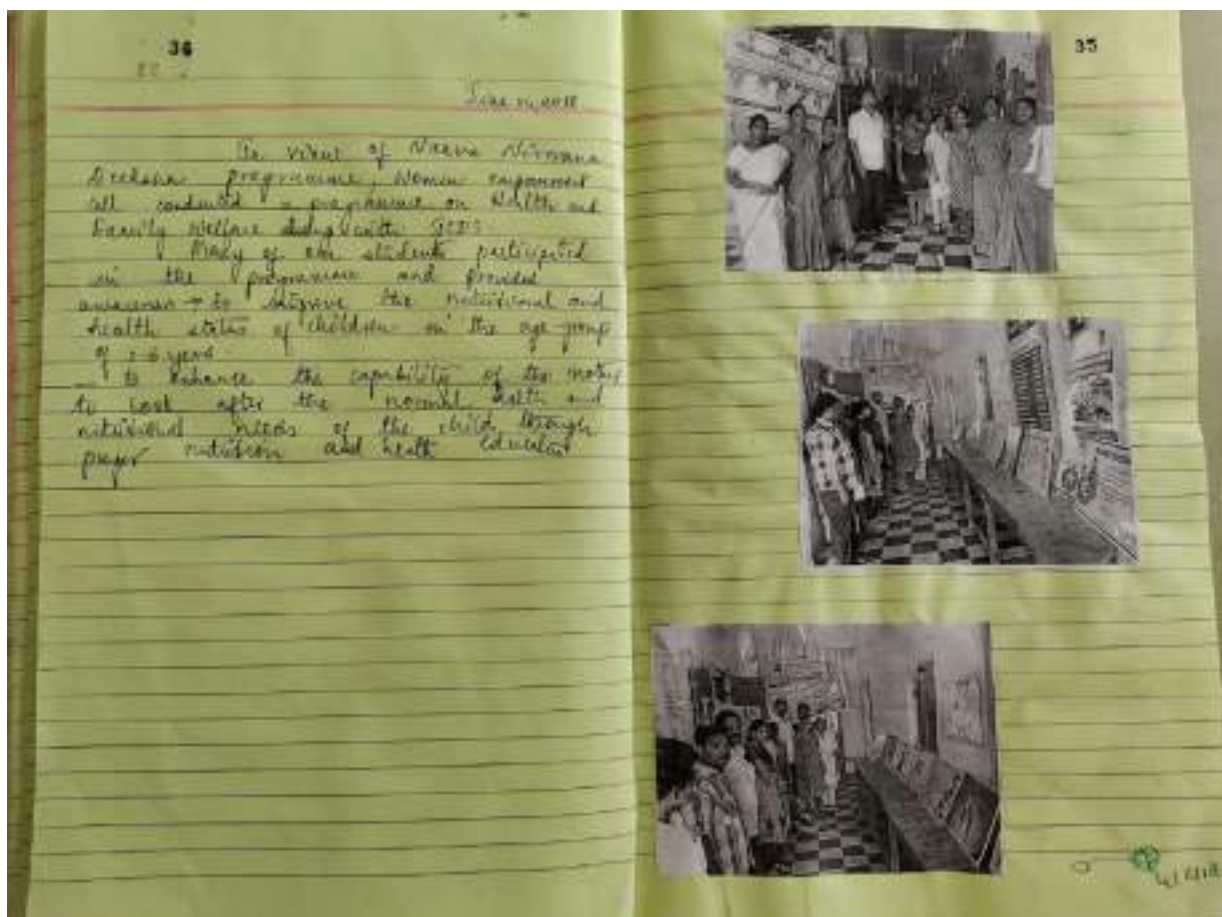 36
In view of Naava Nirmana
Deeksha programme, Women empowerment
cell conducted a programme on Health and
Family Welfare along with ICDS.
Many of our students participated
in the programme and provided
awareness to improve the nutritional and
health status of children in the age group
of years
to enhance the capability of the mother
to look after the normal health and
nutritional needs of the child through
proper nutrition and health Education
35